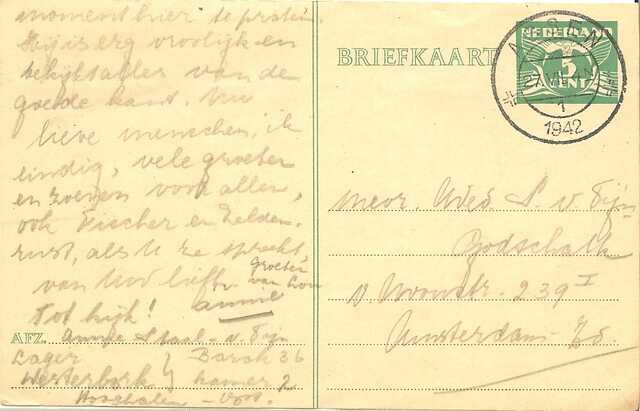 moment hier te praten.
Hij is erg vroolijk en
bekijkt alles van de
goede kant. Nu
lieve menschen, ik
eindig, vele groeten
en zoenen voor allen,
ook Fischer en Zelden-
rust, als U ze spreekt,
van Uw liefh.
groeten
van Lou
Tot kijk! Annie
AFZ. Annie Staal - v. Tijn
Lager Barak 36
Westerbork kamer 2
Hooghalen - Oost.
BRIEFKAART
NEDERLAND
5
CENT
ASSEN
27 VII
1
1942
Mevr. Wed. S. v. Tijn
Godschalk
N. Amstr. 239 I
Amsterdam Zd.